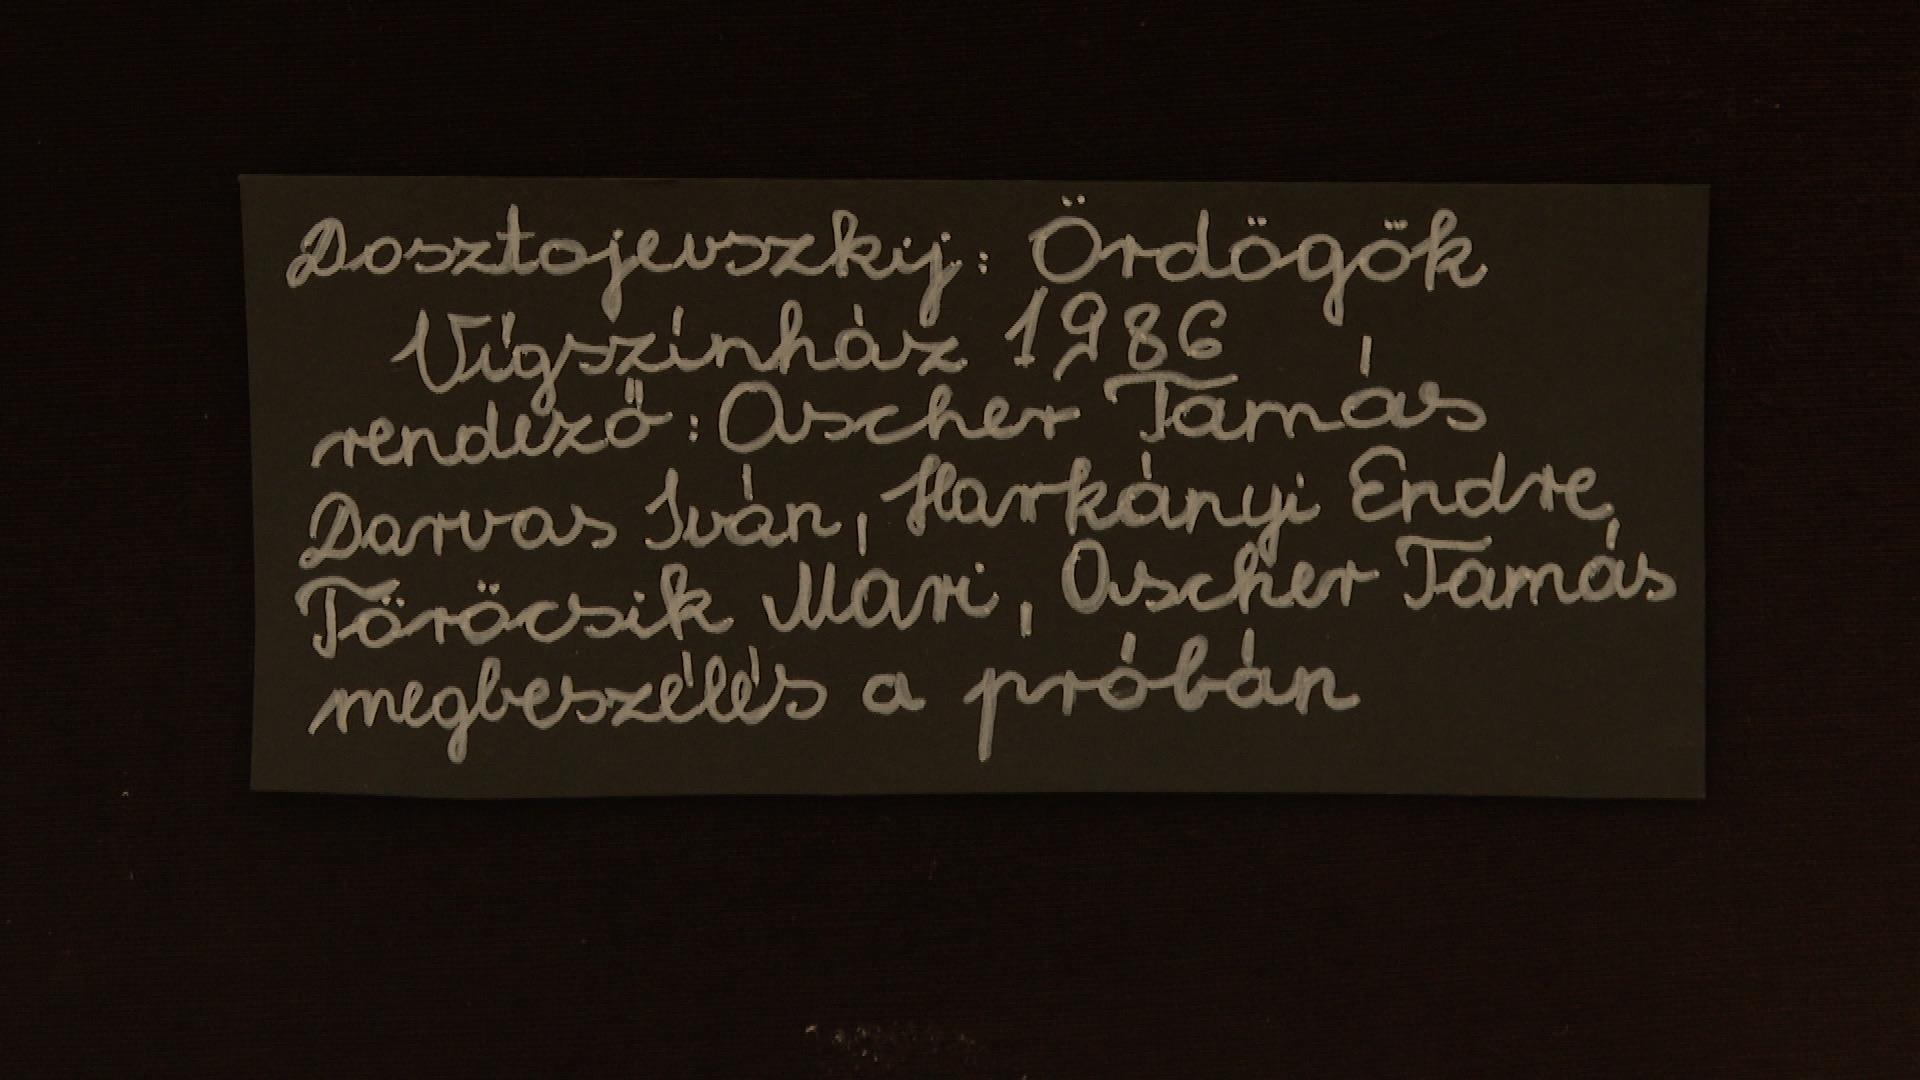 Dosztojevszkij: Ördögök
Vígszínház 1986
rendező: Ascher Tamás
Darvas Iván, Harkányi Endre,
Töröcsik Mari, Ascher Tamás
megbeszélés a próbán